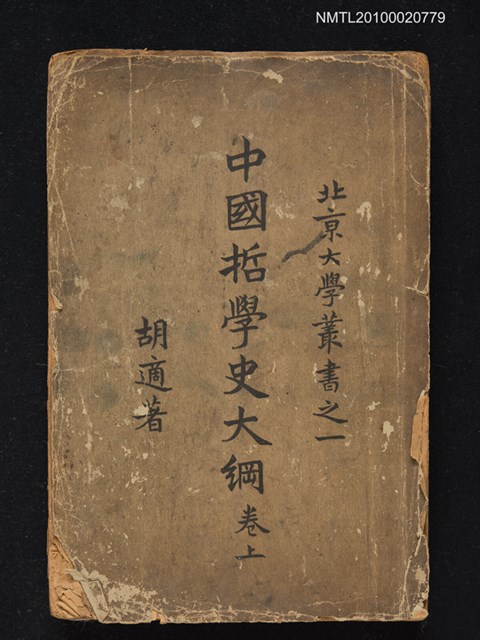 NMTL20100020779
北京大學叢書之一
中國哲學史大綱卷上
胡適著